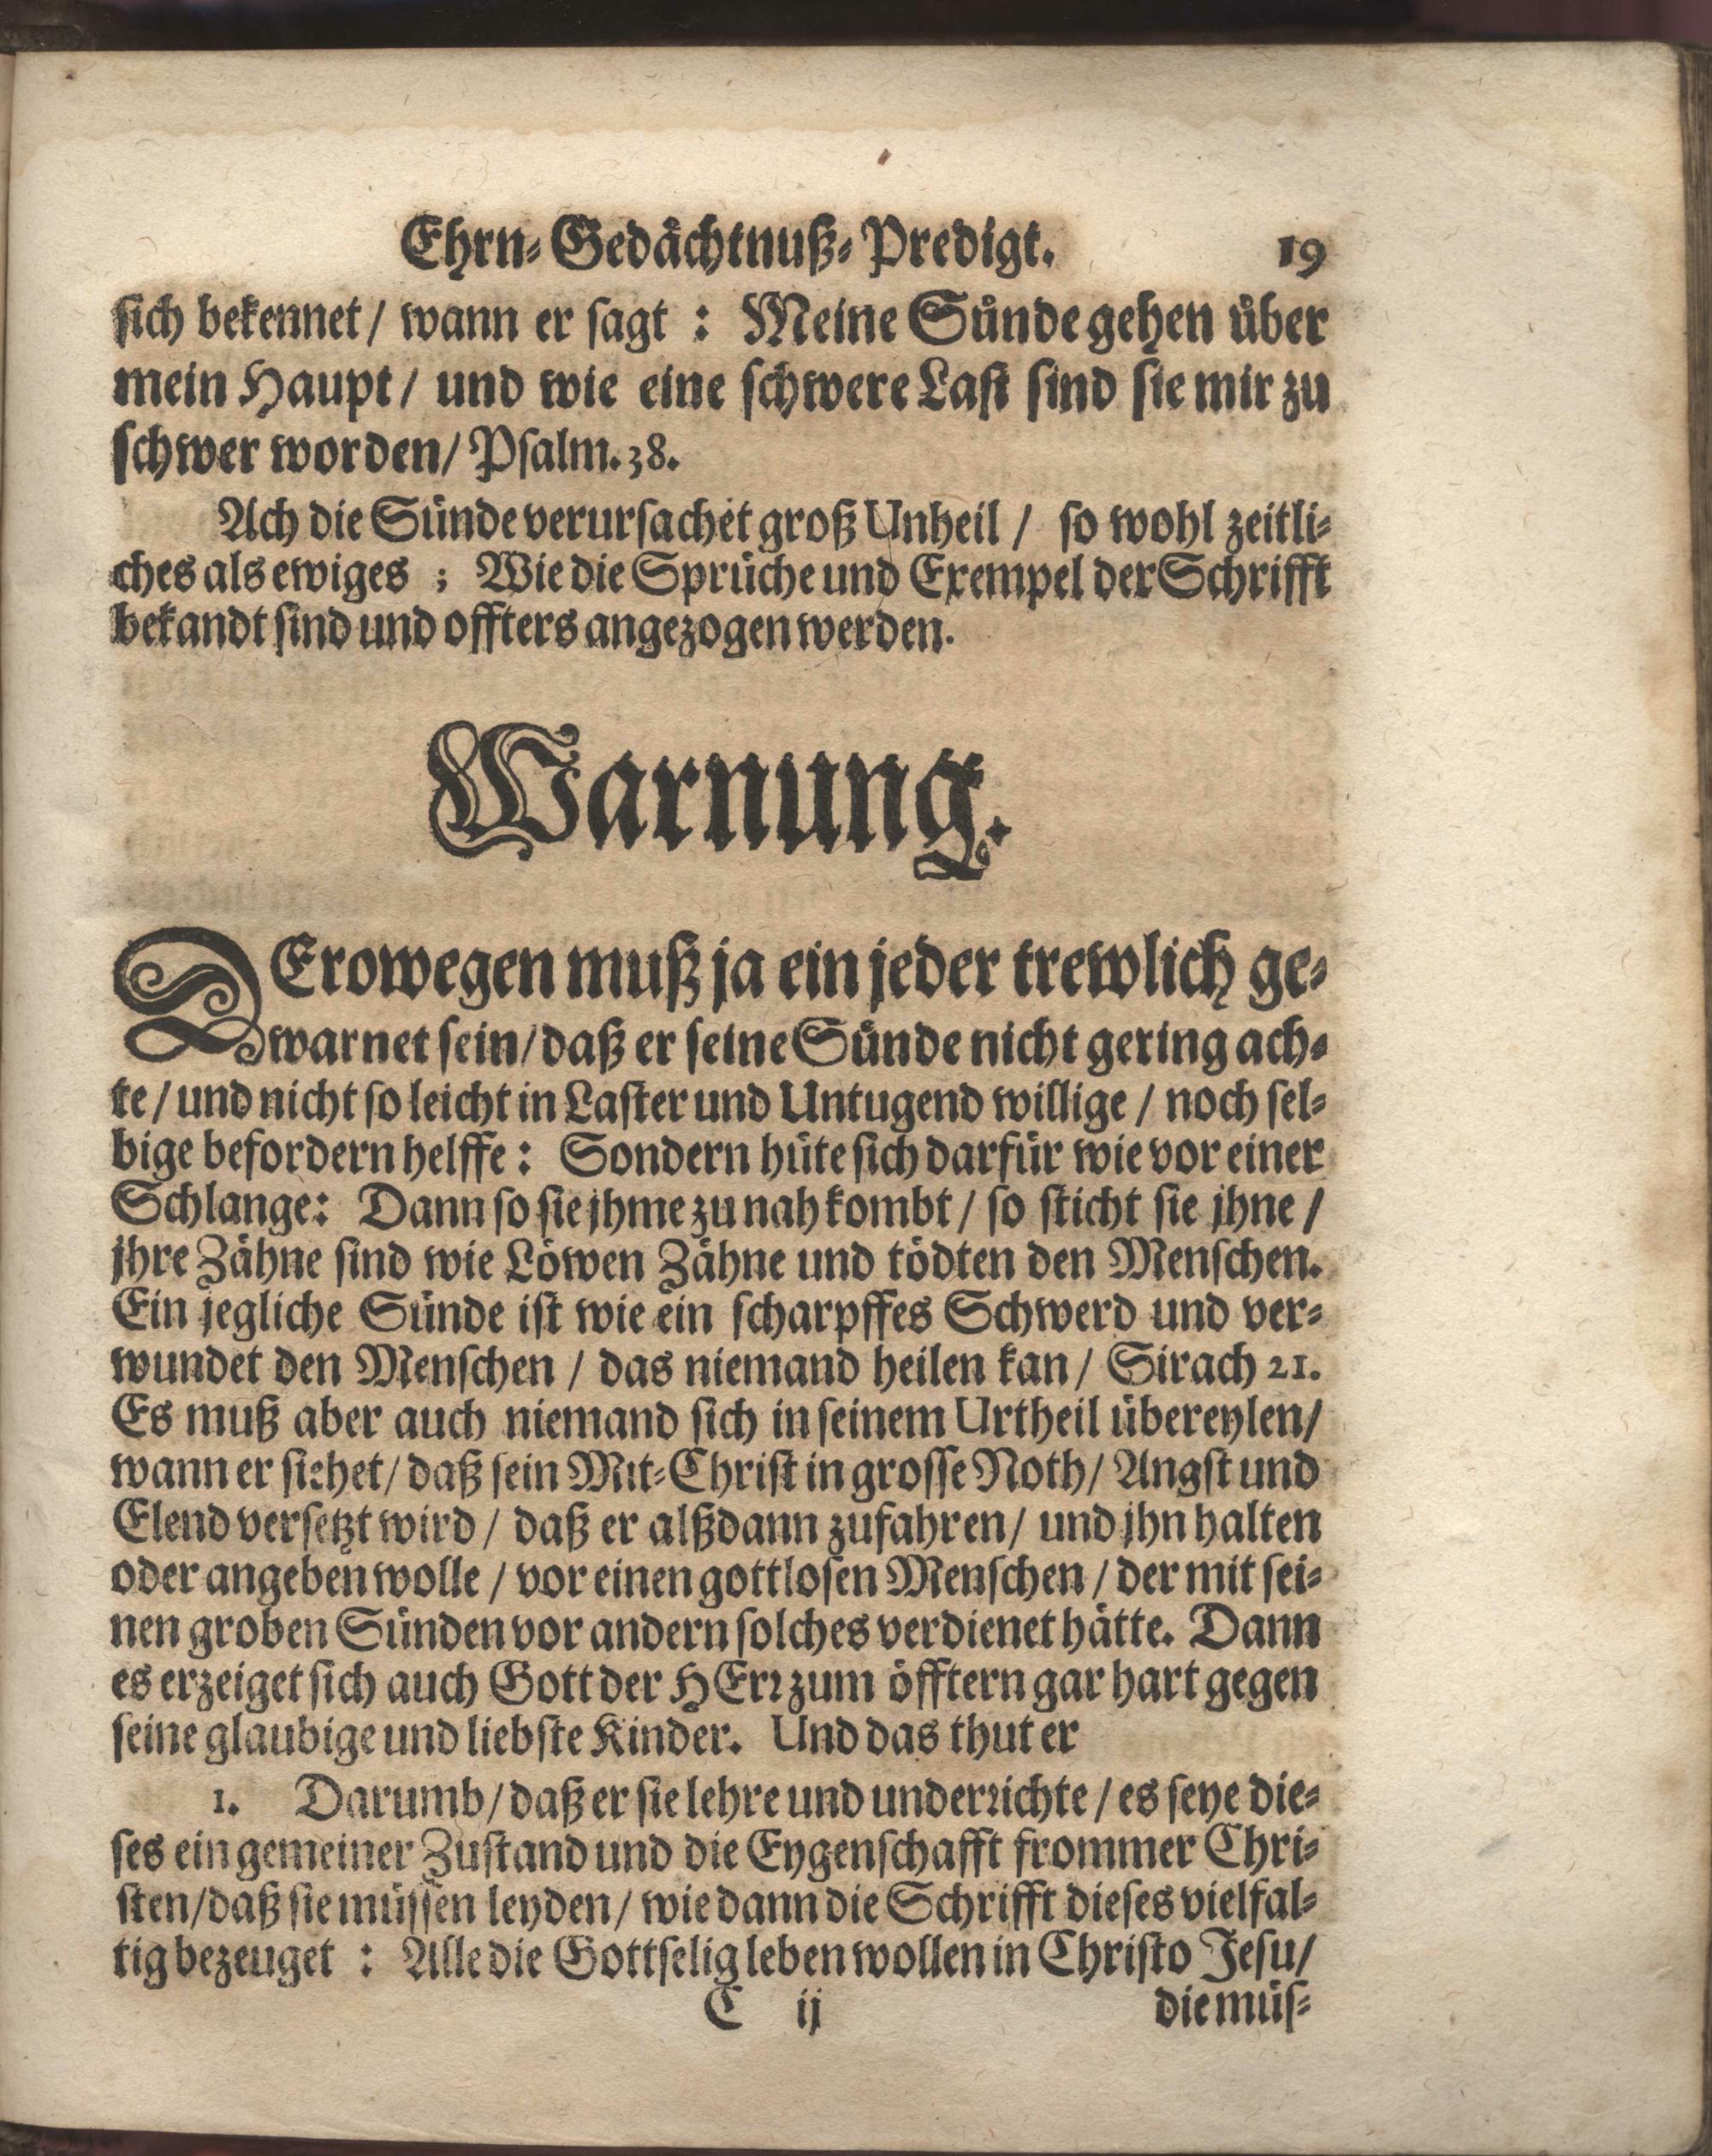 Ehrn-Gedächtnuß-Predigt. 19
sich bekennet/ wann er sagt : Meine Sünde gehen über
mein Haupt/ und wie eine schwere Last sind sie mir zu
schwer worden/ Psalm. 38.
Ach die Sünde verursachet groß Unheil / so wohl zeitli-
ches als ewiges ; Wie die Sprüche und Exempel der Schrifft
bekandt sind und offters angezogen werden.
Warnung.
DErowegen muß ja ein jeder trewlich ge-
warnet sein/ daß er seine Sünde nicht gering ach-
te / und nicht so leicht in Laster und Untugend willige / noch sel-
bige befordern helffe : Sondern hüte sich darfür wie vor einer
Schlange: Dann so sie jhme zu nah kombt / so sticht sie jhne /
jhre Zähne sind wie Löwen Zähne und tödten den Menschen.
Ein jegliche Sünde ist wie ein scharpffes Schwerd und ver-
wundet den Menschen / das niemand heilen kan/ Sirach 21.
Es muß aber auch niemand sich in seinem Urtheil übereylen/
wann er siehet/ daß sein Mit-Christ in grosse Noth/ Angst und
Elend versetzt wird / daß er alßdann zufahren/ und jhn halten
oder angeben wolle / vor einen gottlosen Menschen / der mit sei-
nen groben Sünden vor andern solches verdienet hätte. Dann
es erzeiget sich auch Gott der HErr zum öfftern gar hart gegen
seine glaubige und liebste Kinder. Und das thut er
1. Darumb/ daß er sie lehre und underrichte / es seye die-
ses ein gemeiner Zustand und die Eygenschafft frommer Chri-
sten/ daß sie müssen leyden/ wie dann die Schrifft dieses vielfal-
tig bezeuget : Alle die Gottselig leben wollen in Christo Jesu/
C ij die müs-